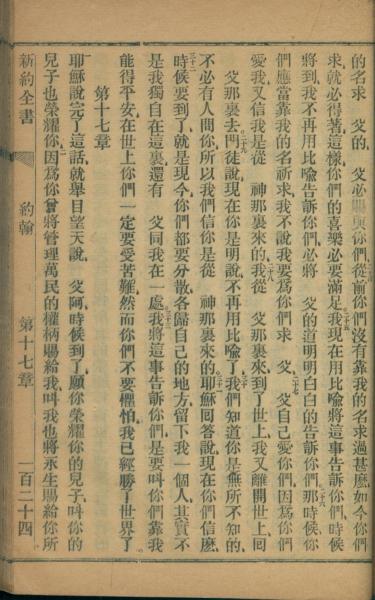 的名求　父的、　父必賜與你們、從前你們沒有靠我的名求過甚麼、如今你們
求、就必得著、這樣你們的喜樂必要滿足、我現在用比喻將這事告訴你們、時候
將到、我不再用比喻告訴你們、必將　父的道明明白白的告訴你們、那時候、你
們應當靠我的名祈求、我不說我要爲你們求　父、　父自己愛你們、因爲你們
愛我、又信我是從　神那裏來的、我從　父那裏來到了世上、我又離開世上、回
父那裏去、門徒說、現在你是明說、不再用比喻了、我們知道你是無所不知的、
不必有人問你、所以我們信你是從　神那裏來的、耶穌回答說、現在你們信麼、
時候要到了、就是現今、你們都要分散、各歸自己的地方、留下我一個人、其實不
是我獨自在這裏、還有　父同我在一處、我將這事告訴你們、是要叫你們靠我
能得平安、在世上你們一定要受苦難、然而你們不要懼怕、我已經勝了世界了、
第十七章
耶穌說完了這話、就舉目望天說、　父阿、時候到了、願你榮耀你的兒子、叫你的
兒子也榮耀你、因爲你曾將管理萬民的權柄賜給我、叫我也將永生賜給你所
新約全書
約翰
第十七章
一百二十四